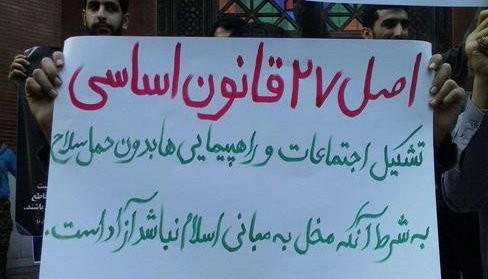 اصل ۲۷ قانون اساسی
تشکیل اجتماعات و راهپیمایی ها بدون حمل سلاح
به شرط آنکه مخل به مبانی اسلام نباشد آزاد است.
ست
قاطع
باشند.